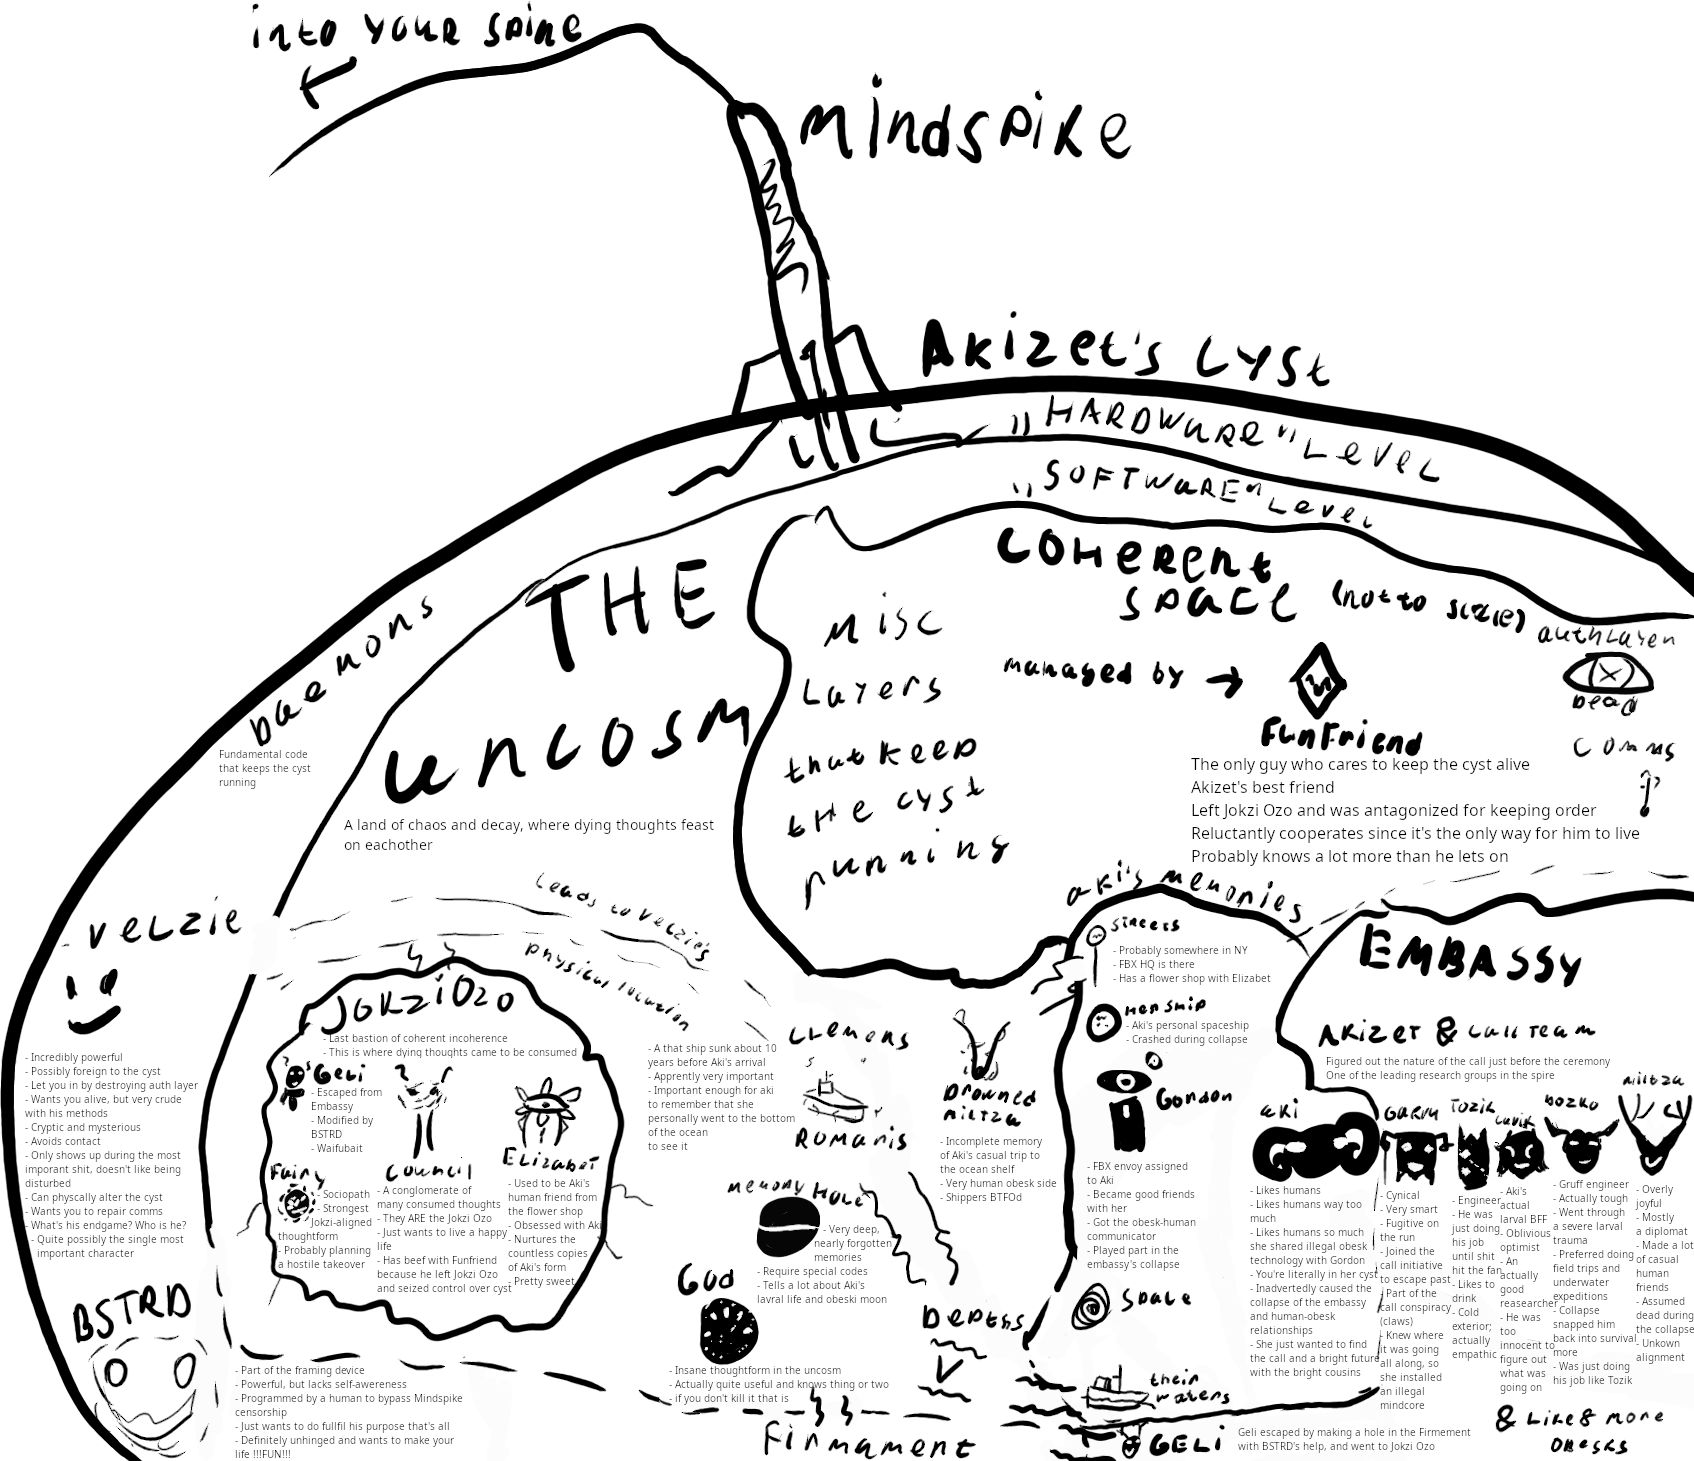 into your spine
Mindspike
Akizet's Cyst
"HARDWARE" LEVEL
"SOFTWARE" LEVEL
COHERENT
SPACE (not to scale)
managed by →
FunFriend
The only guy who cares to keep the cyst alive
Akizet's best friend
Left Jokzi Ozo and was antagonized for keeping order
Reluctantly cooperates since it's the only way for him to live
Probably knows a lot more than he lets on
authLayer
Dead
comms
misc
Layers
that keep
the cyst
running
Daemons
Fundamental code
that keeps the cyst
running
THE
UNCOSM
A land of chaos and decay, where dying thoughts feast
on eachother
Leads to Velzie's
physical location
VELZIE
- Incredibly powerful
- Possibly foreign to the cyst
- Let you in by destroying auth layer
- Wants you alive, but very crude
with his methods
- Cryptic and mysterious
- Avoids contact
- Only shows up during the most
imporant shit, doesn't like being
disturbed
- Can physcally alter the cyst
- Wants you to repair comms
- What's his endgame? Who is he?
- Quite possibly the single most
important character
BSTRD
- Part of the framing device
- Powerful, but lacks self-awereness
- Programmed by a human to bypass Mindspike
censorship
- Just wants to do fullfil his purpose that's all
- Definitely unhinged and wants to make your
life !!!FUN!!!
Jokzi Ozo
- Last bastion of coherent incoherence
- This is where dying thougts came to be consumed
Geli
- Escaped from
Embassy
- Modified by
BSTRD
- Waifubait
Fairy
- Sociopath
- Strongest
Jokzi-aligned
thoughtform
- Probably planning
a hostile takeover
Council
- A conglomerate of
many consumed thoughts
- They ARE the Jokzi Ozo
- Just wants to live a happy
life
- Has beef with Funfriend
because he left Jokzi Ozo
and seized control over cyst
Elizabet
- Used to be Aki's
human friend from
the flower shop
- Obsessed with Aki
- Nurtures the
countless copies
of Aki's form
- Pretty sweet
- A that ship sunk about 10
years before Aki's arrival
- Apprently very important
- Important enough for aki
to remember that she
personally went to the bottom
of the ocean
to see it
Clemens
Romanis
Drowned
Miltza
- Incomplete memory
of Aki's casual trip to
the ocean shelf
- Very human obesk side
- Shippers BTFOd
memory Hole
- Very deep,
nearly forgotten
memories
- Require special codes
- Tells a lot about Aki's
lavral life and obeski moon
God
- Insane thoughtform in the uncosm
- Actually quite useful and knows thing or two
- if you don't kill it that is
Depths
Firmament
aki's memories
Streets
- Probably somewhere in NY
- FBX HQ is there
- Has a flower shop with Elizabet
Her ship
- Aki's personal spaceship
- Crashed during collapse
Gordon
- FBX envoy assigned
to Aki
- Became good friends
with her
- Got the obesk-human
communicator
- Played part in the
embassy's collapse
Space
their
waters
GELI
Geli escaped by making a hole in the Firmement
with BSTRD's help, and went to Jokzi Ozo
EMBASSY
Akizet & call team
Figured out the nature of the call just before the ceremony
One of the leading research groups in the spire
aki
- Likes humans
- Likes humans way too
much
- Likes humans so much
she shared illegal obesk
technology with Gordon
- You're literally in her cyst
- Inadvertedly caused the
collapse of the embassy
and human-obesk
relationships
- She just wanted to find
the call and a bright future
with the bright cousins
Garru
- Cynical
- Very smart
- Fugitive on
the run
- Joined the
call initiative
to escape past
- Part of the
call conspiracy
(claws)
- Knew where
it was going
all along, so
she installed
an illegal
mindcore
Tozik
- Engineer
- He was
just doing
his job
until shit
hit the fan
- Likes to
drink
- Cold
exterior;
actually
empathic
Cavik
- Aki's
actual
larval BFF
- Oblivious
optimist
- An
actually
good
reasearcher
- He was
too
innocent to
figure out
what was
going on
Bozko
- Gruff engineer
- Actually tough
- Went through
a severe larval
trauma
- Preferred doing
field trips and
underwater
expeditions
- Collapse
snapped him
back into survival
more
- Was just doing
his job like Tozik
Miltza
- Overly
joyful
- Mostly
a diplomat
- Made a lot
of casual
human
friends
- Assumed
dead during
the collapse
- Unkown
alignment
& Like 8 more
obesks